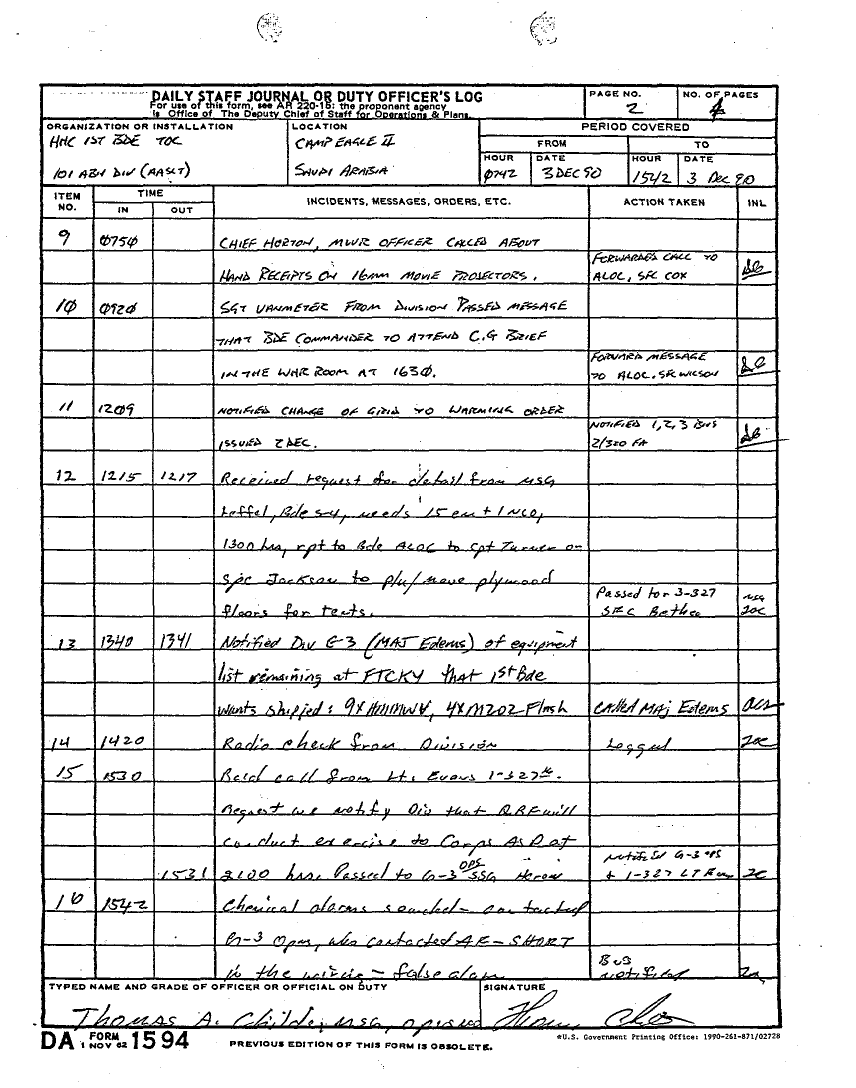 DAILY STAFF JOURNAL OR DUTY OFFICER'S LOG
For use of this form, see AR 220-15; the proponent agency
is Office of The Deputy Chief of Staff for Operations & Plans.
PAGE NO.
2
NO. OF PAGES
4
ORGANIZATION OR INSTALLATION
HHC 1ST BDE TOC
101 ABN DIV (AASLT)
LOCATION
CAMP EAGLE II
SAUDI ARABIA
PERIOD COVERED
FROM
TO
HOUR
0742
DATE
3 DEC 90
HOUR
1542
DATE
3 DEC 90
ITEM NO.
TIME
IN
OUT
INCIDENTS, MESSAGES, ORDERS, ETC.
ACTION TAKEN
INL
9 0750 CHIEF HORTON, MWR OFFICER CALLED ABOUT
HAND RECEIPTS ON 16mm MOVIE PROJECTORS.
FORWARDED CALL TO
ALOC, SFC COX
10 0920 SGT VANMETER FROM DIVISION PASSED MESSAGE
THAT BDE COMMANDER TO ATTEND C.G BRIEF
IN THE WAR ROOM AT 1630.
FORWARD MESSAGE
TO ALOC, SFC WILSON
11 1209 NOTIFIED CHANGE OF GRID TO WARNING ORDER
ISSUED 2 DEC.
NOTIFIED 1, 2, 3 BNS
2/320 FA
12 1215 1217 Received request for detail from MSG
Loffel, Bde S4, needs 15 em + 1 NCO,
1300 hrs, rpt to Bde ALOC to Cpt Turner or
Spc Jackson to p/u/move plywood
floors for tents.
Passed to 3-327
SFC Bethea
13 1340 1341 Notified Div G-3 (MAJ Edens) of equipment
list remaining at FTCKY that 1st Bde
wants shipped: 9X HMMWV, 4X M202 Flash
Called Maj Edens
14 1420 Radio check from Division
Logged
15 1530 Recd call from Lt. Evans 1-327th.
Request we notify Div that QRF will
conduct exercise to Corps ASP at
1531 2100 hrs. Passed to G-3 OPS SSG
notified G-3 ops
+ 1-327 LT
16 1542 Chemical alarms sounded - contacted
G-3 Opns, who contacted AF - SHORT
in the wiring - false alarm
BnS
notified
TYPED NAME AND GRADE OF OFFICER OR OFFICIAL ON DUTY
Thomas A. Childs, MSG,
SIGNATURE
DA FORM 1 NOV 62 1594
PREVIOUS EDITION OF THIS FORM IS OBSOLETE.
*U.S. Government Printing Office: 1990-261-871/02728